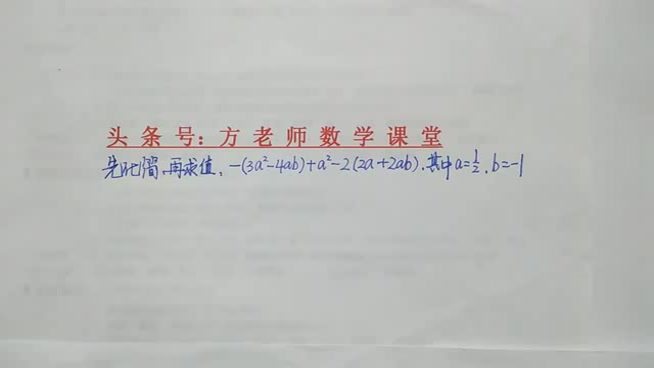 头条号：方老师数学课堂
先化简，再求值，-(3a²-4ab)+a²-2(2a+2ab)，其中a=1/2，b=-1